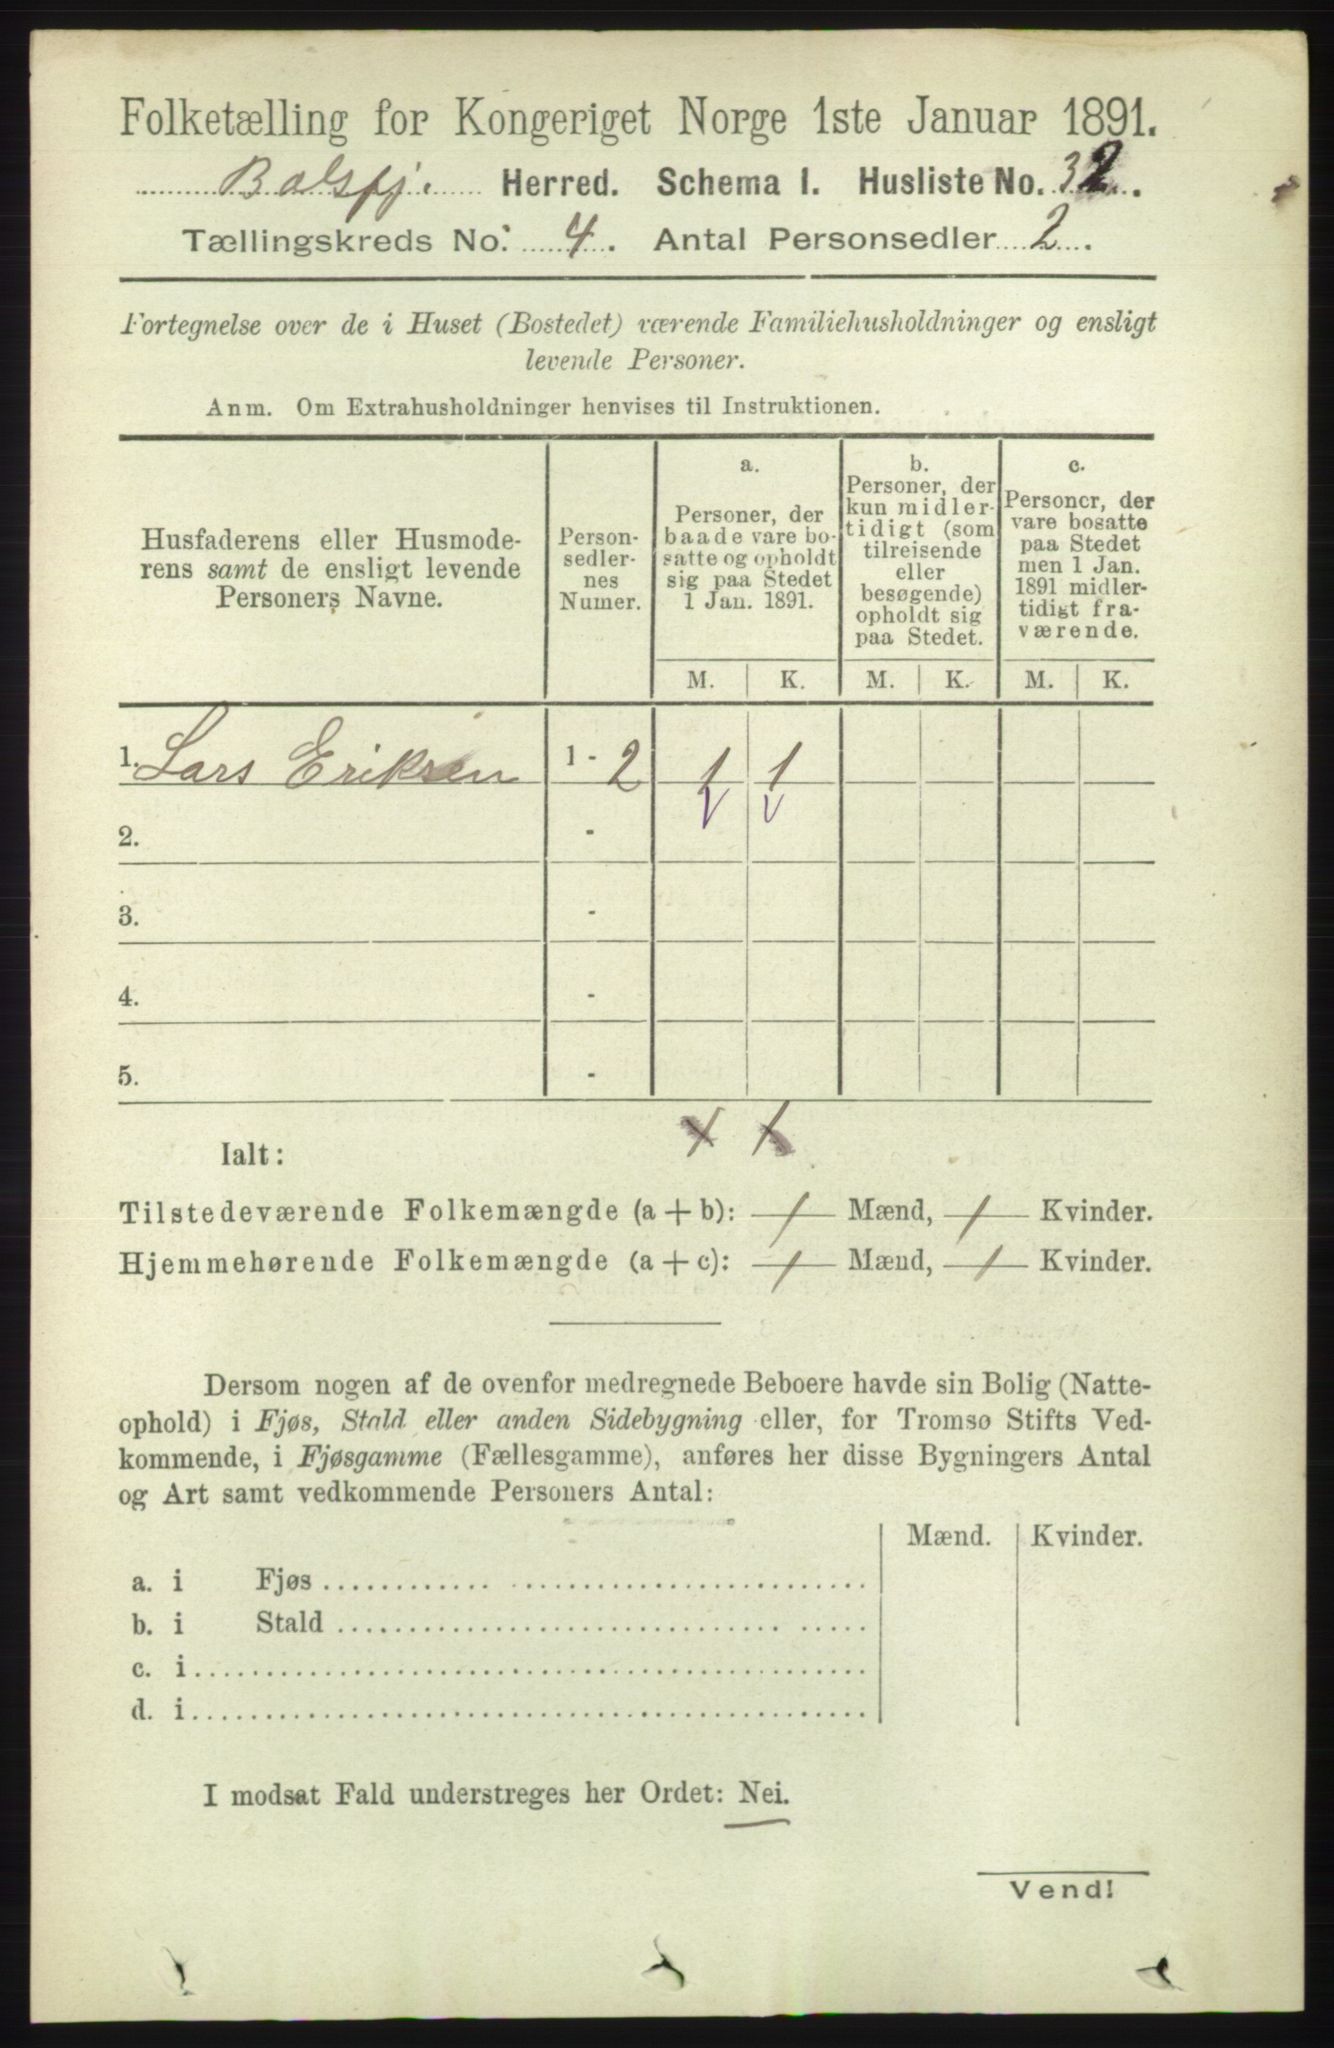 Folketælling for Kongeriget Norge 1ste Januar 1891.
Balsfj. Herred. Schema I. Husliste No. 32.
Tællingskreds No. 4. Antal Personsedler 2.
Fortegnelse over de i Huset (Bostedet) værende Familiehusholdninger og ensligt
levende Personer.
Anm. Om Extrahusholdninger henvises til Instruktionen.
Husfaderens eller Husmode-
rens samt de ensligt levende
Personers Navne.
Person-
sedler-
nes
Numer.
a.
Personer, der
baade vare bo-
satte og opholdt
sig paa Stedet
1 Jan. 1891.
b.
Personer, der
kun midler-
tidigt (som
tilreisende
eller
besøgende)
opholdt sig
paa Stedet.
c.
Personer, der
vare bosatte
paa Stedet
men 1 Jan.
1891 midler-
tidigt fra-
værende.
M. K. M. K. M. K.
1. Lars Eriksen 1 - 2 1 1
2. -
3. -
4. -
5. -
Ialt: 1 1
Tilstedeværende Folkemængde (a + b): 1 Mænd, 1 Kvinder.
Hjemmehørende Folkemængde (a + c): 1 Mænd, 1 Kvinder.
Dersom nogen af de ovenfor medregnede Beboere havde sin Bolig (Natte-
ophold) i Fjøs, Stald eller anden Sidebygning eller, for Tromsø Stifts Ved-
kommende, i Fjøsgamme (Fællesgamme), anføres her disse Bygningers Antal
og Art samt vedkommende Personers Antal:
Mænd. Kvinder.
a. i Fjøs
b. i Stald
c. i
d. i
I modsat Fald understreges her Ordet: Nei.
Vend!